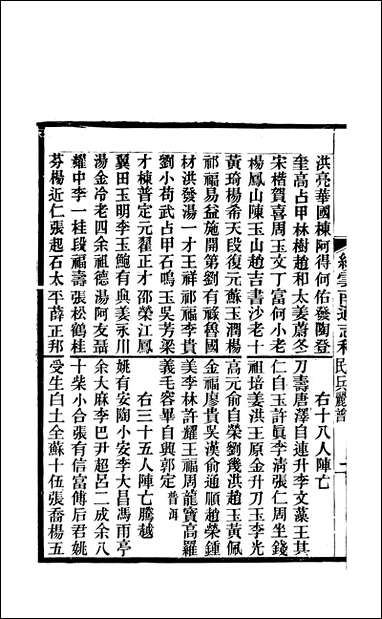 洪亮華國棟阿得何佑發陶登　右十八人陣亡
奎高占甲林樹趙和太姜蔚冬刀壽唐澤自連升李文藻王其
宋楷賀喜周玉文丁富何小老仁自玉許眞李清張仁周坐錢
楊鳳山陳玉山趙吉書沙老十祖培姜洪王原金升刀玉李光
黃琦楊希天段復元蘇玉潤楊高元俞自榮劉幾洪趙玉黃佩
祁福易益施開第劉有祿魯國金福廖貴吳漢俞通順趙榮鍾
材洪發湯一才王祥祁福李貴美李林許耀王福周龍寶高羅
劉小苟武占甲石鳴玉吳芳梁義毛容畢自興郭定　普洱
才棟普定元翟正才邵榮江鳳　右三十五人陣亡騰越
翼田玉明李玉鮑有與姜永川姚有安陶小安李大昌馮雨亭
湯金冷老四余祖德湯阿友聶余大麻李巴尹超呂二成余八
耀中李一桂段福壽張松鶴桂十柴小合張有信富傅后君姚
芬楊近仁張起石太平薛正邦受生白土全蘇十伍張喬楊五